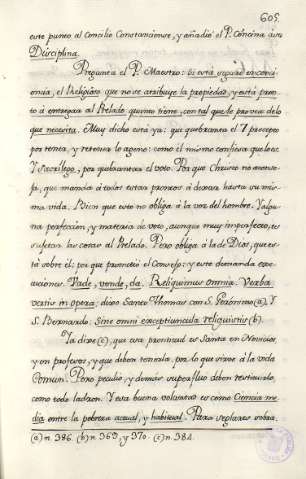 605.
este punto al Concilio Constanciense, y añadió el P. Concina a su
Disciplina.
Pregunta el P. Maestro: si está seguro en conci-
encia, el Religioso que no se atribuye la propiedad, y está pron-
to á entregar al Prelado quanto tiene, con tal que le provea de lo
que necesita. Muy dicho está ya: que quebranta el 7 precepto
por tener, y retener lo ageno: como el mismo confiesa que lo es.
Y Sacrílego, por quebrantar el voto. Por que Christo no aconse-
ja, que manda á todos estar prontos á dexar hasta su mis-
ma vida. Bien que esto no obliga á la voz del hombre. Y algu-
na perfeccion, y materia de voto, aunque muy imperfecto, es
sujetar las cosas al Prelado. Pero obliga á la de Dios, que es-
tá sobre él; por que prometió el Consejo: y este demanda exe-
cuciones. Vade, vende, da. Reliquimus omnia. Verba
vertis in opera: dicen Santo Thomas con S. Geronimo (a). Y
S. Bernardo. Sine omni exceptiuncula reliquistis (b).
Ya dixe (c), que esa prontitud es Santa en Novicios,
y en profesos, y que deben tenerla, por lo que sirve á la vida
Comun. Pero peculio, y demás superfluo deben restituirlo,
como todo ladron. Y esa buena voluntad es como Ciencia me-
dia entre la pobreza actual, y habitual. Para seglares sobra.
(a) n. 396. (b) n. 369, y 370. (c) n. 384.